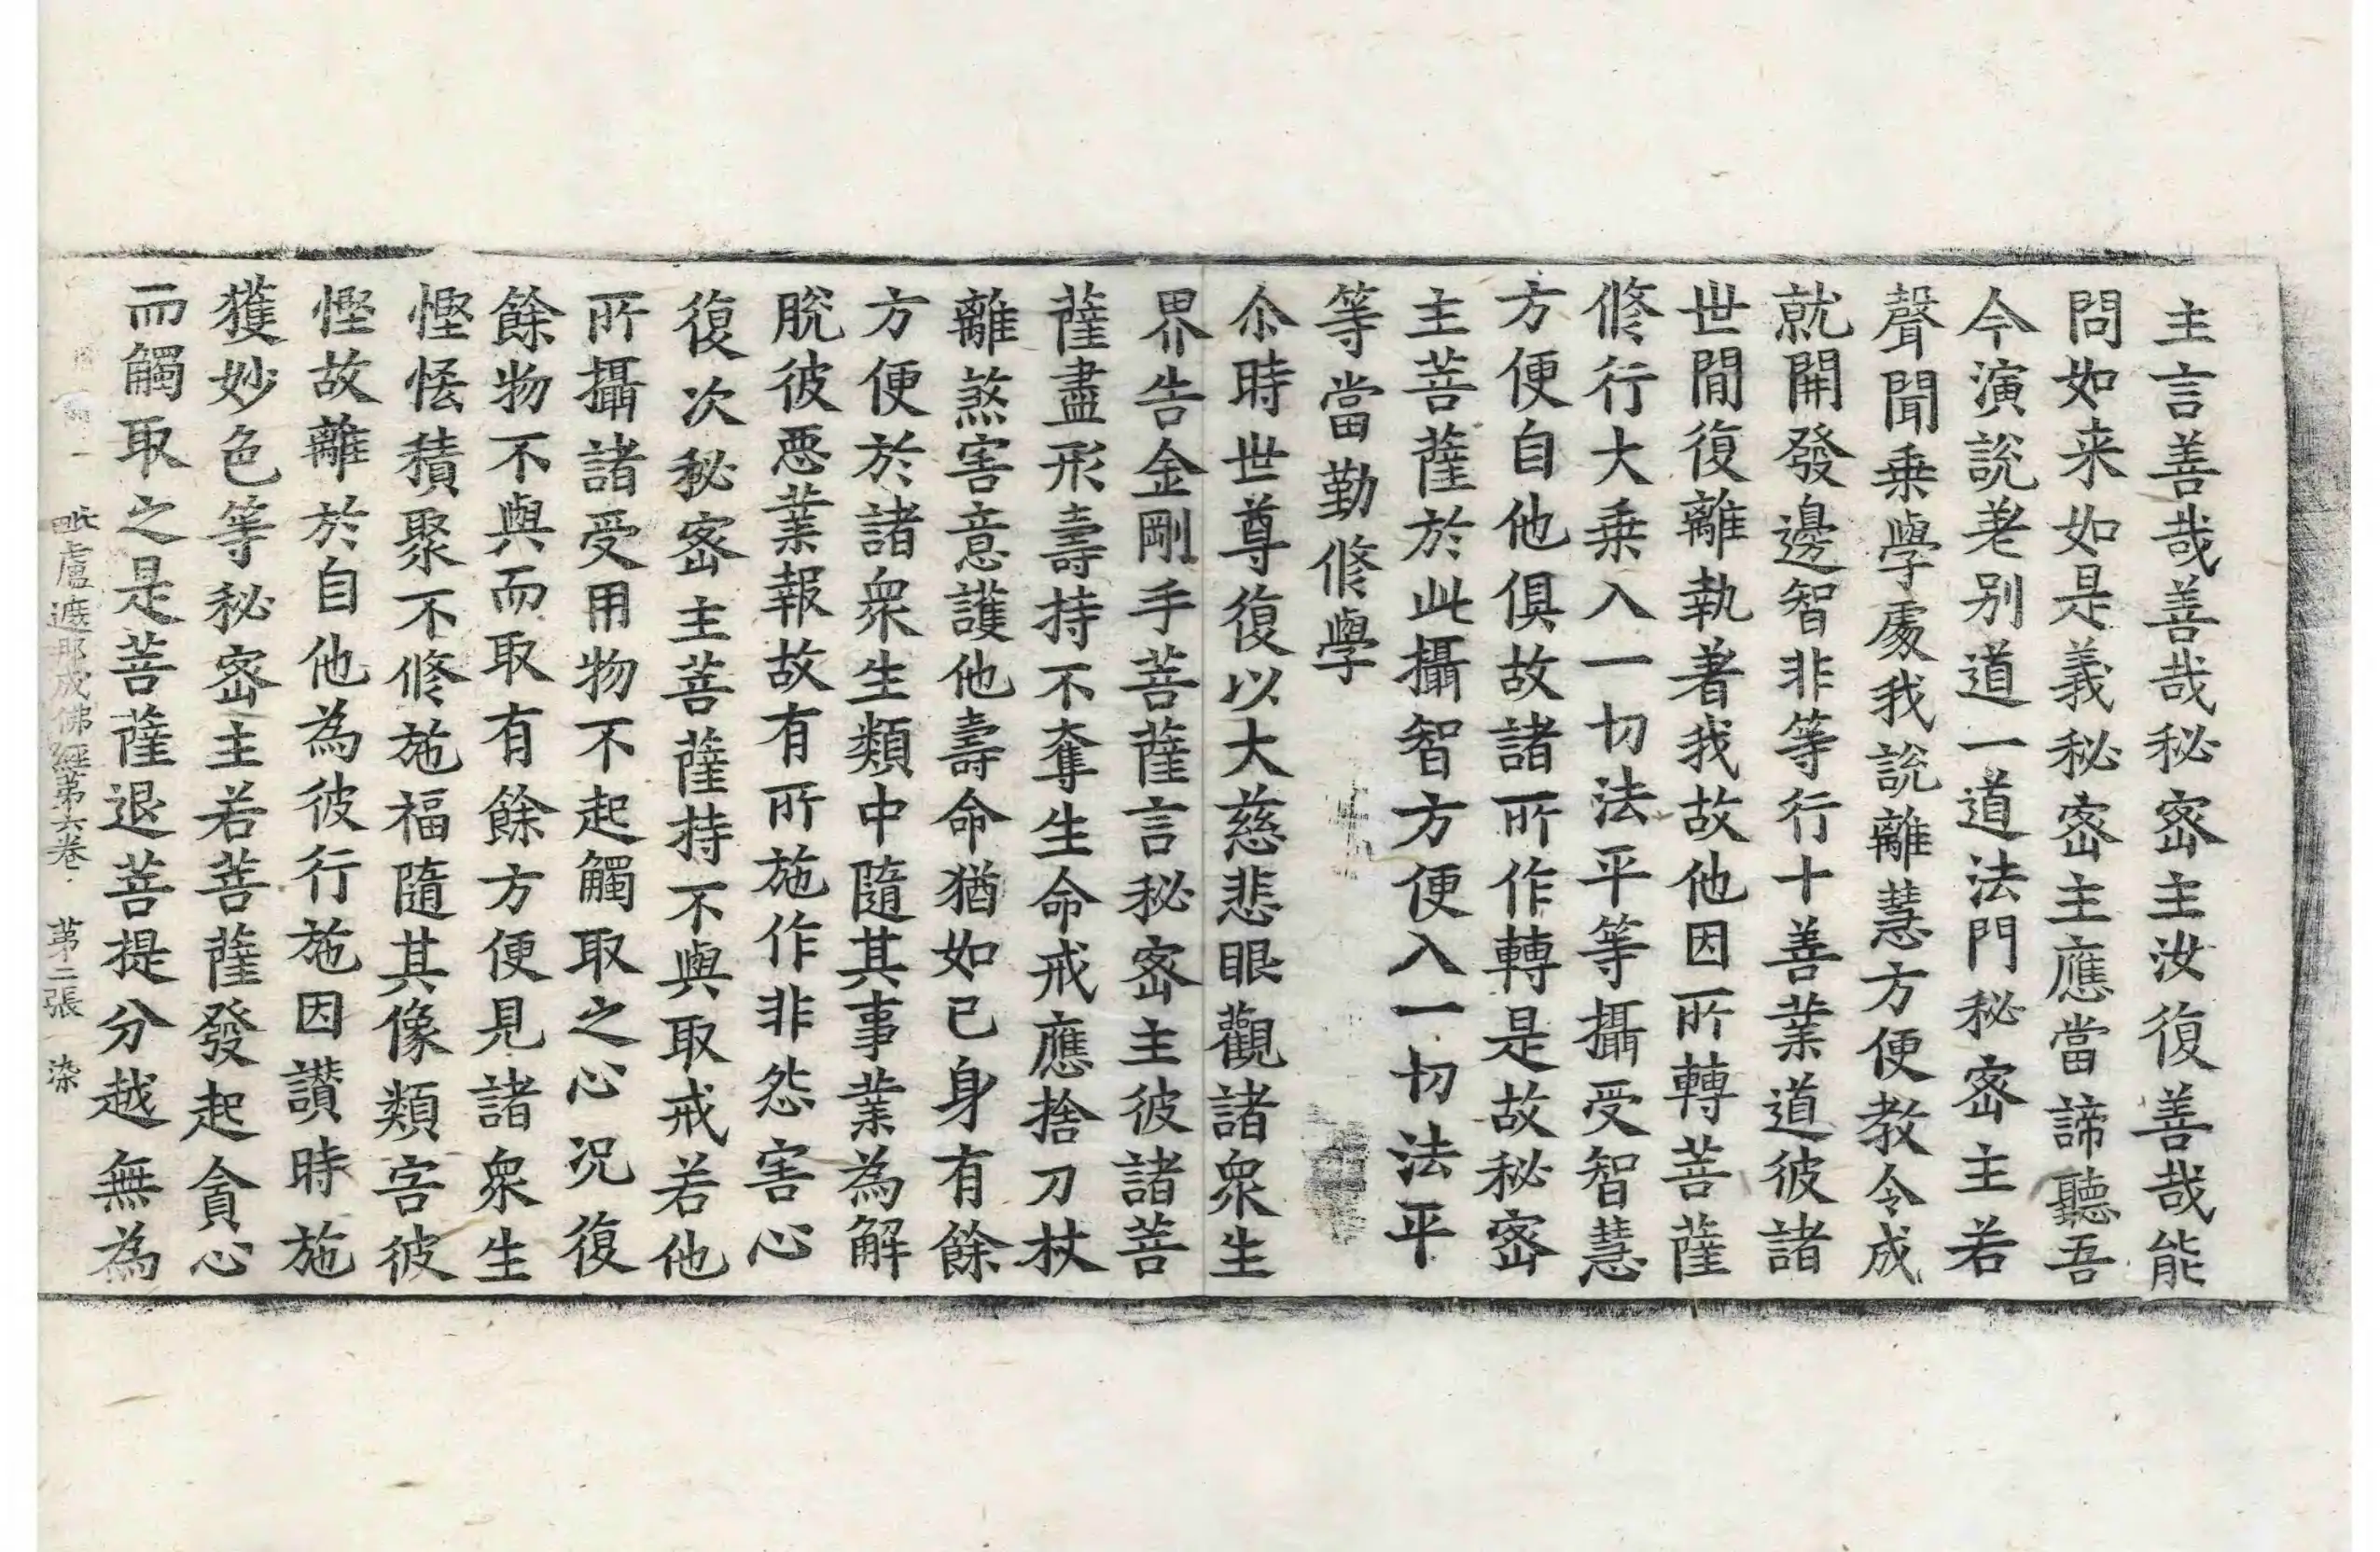 主言善哉善哉秘密主汝復善哉能
問如来如是義秘密主應當諦聽吾
今演說差別道一道法門秘密主若
聲聞乗學處我說離慧方便教令成
就開發邊智非等行十善業道彼諸
世間復離執著我故他因所轉菩薩
修行大乗入一切法平等攝受智慧
方便自他俱故諸所作轉是故秘密
主菩薩於此攝智方便入一切法平
等當勤修學
尒時世尊復以大慈悲眼觀諸眾生
界告金剛手菩薩言秘密主彼諸菩
薩盡形壽持不奪生命戒應捨刀杖
離煞害意護他壽命猶如已身有餘
方便於諸眾生類中隨其事業為解
脫彼惡業報故有所施作非怨害心
復次秘密主菩薩持不與取戒若他
所攝諸受用物不起觸取之心況復
餘物不與而取有餘方便見諸眾生
慳悋積聚不修施福隨其像類害彼
慳故離於自他為彼行施因讚時施
獲妙色等秘密主若菩薩發起貪心
而觸取之是菩薩退菩提分越無為
毗盧遮那成佛經第六卷 第二張 染